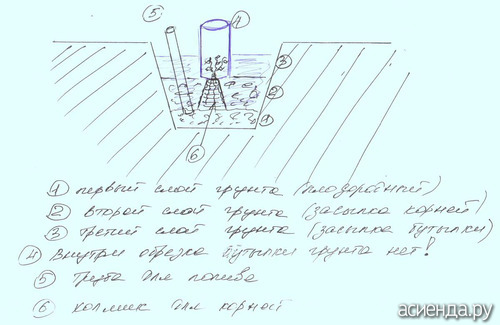 5
4
3
2
1
6
1 первый слой грунта (плодородный)
2 второй слой грунта (засыпка корней)
3 третий слой грунта (засыпка бутылки)
4 внутри обрезка бутылки грунта нет!
5 труба для полива
6 холмик для корней
асиенда.ру